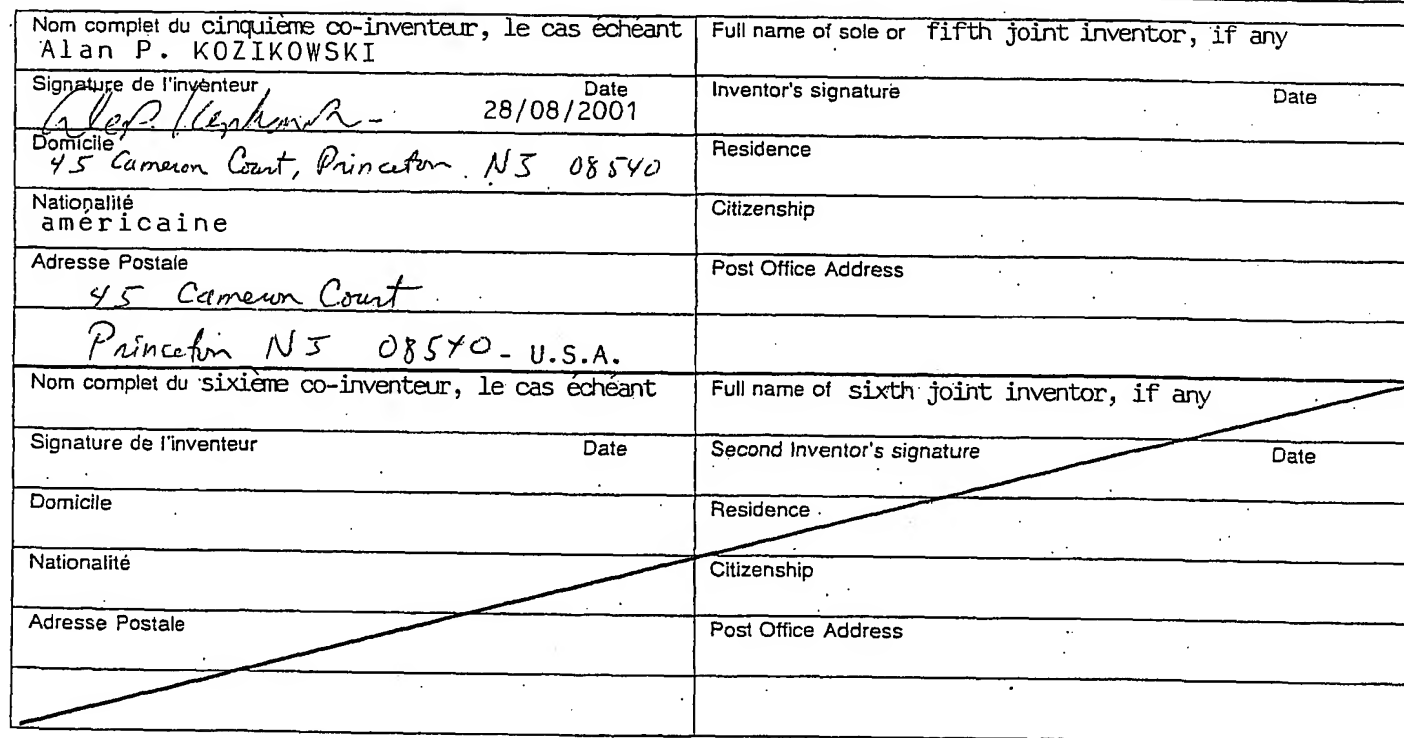 Nom complet du cinquième co-inventeur, le cas échéant
Alan P. KOZIKOWSKI
Full name of sole or fifth joint inventor, if any
Signature de l'inventeur Date
28/08/2001
Inventor's signature Date
Domicile
45 Cameron Court, Princeton NJ 08540
Residence
Nationalité
américaine
Citizenship
Adresse Postale
45 Cameron Court
Princeton NJ 08540 - U.S.A.
Post Office Address
Nom complet du sixième co-inventeur, le cas échéant
Full name of sixth joint inventor, if any
Signature de l'inventeur Date
Second Inventor's signature Date
Domicile
Residence
Nationalité
Citizenship
Adresse Postale
Post Office Address